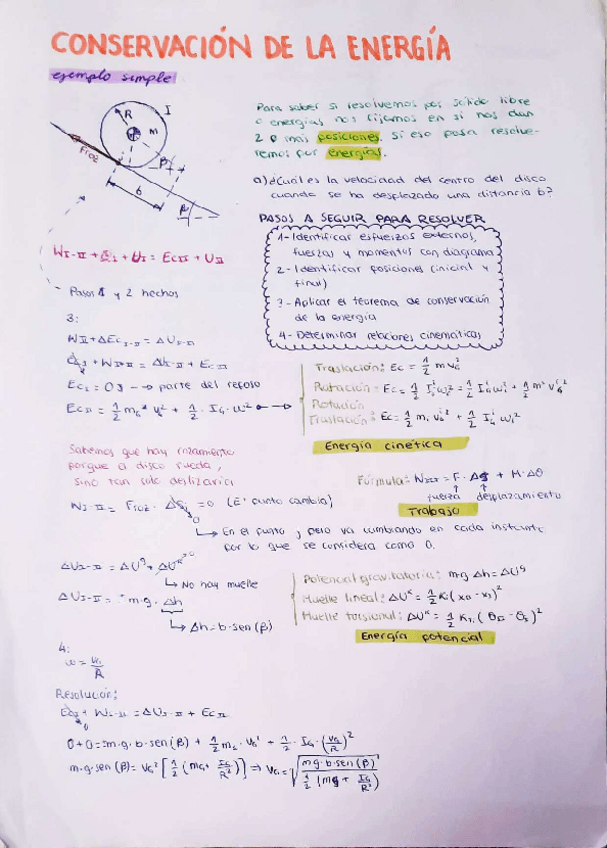 CONSERVACIÓN DE LA ENERGÍA
ejemplo simple
R
I
m
β
Froz
b
β
Para saber si resolvemos por sólido libre
o energías nos fijamos en si nos dan
2 o más posiciones. Si eso pasa resolve-
remos por energías.
a) ¿Cuál es la velocidad del centro del disco
cuando se ha desplazado una distancia b?
PASOS A SEGUIR PARA RESOLVER
1- Identificar esfuerzos externos,
fuerzas y momentos con diagrama
2- Identificar posiciones (inicial y
final)
3- Aplicar el teorema de conservación
de la energía
4- Determinar relaciones cinemáticas
WI-II + EcI + UI = EcII + UII
Pasos 1 y 2 hechos
3:
EcI = 0J → parte del reposo
EcII = 1/2 mG · vG² + 1/2 · IG · ω²
Traslación: Ec = 1/2 m vG²
Rotación
Traslación: Ec = 1/2 m, vG² + 1/2 IG ωi²
Energía cinética
Sabemos que hay rozamiento
porque el disco rueda,
sino tan solo deslizaría
Fórmula: WI-II = F · Δs + M · Δθ
fuerza desplazamiento
Trabajo
= 0 (El punto cambia)
En el punto, pero va cambiando en cada instante
por lo que se considera como 0.
No hay muelle
ΔUI-II = -m·g·Δh
Δh = b·sen(β)
Potencial gravitatoria: m·g·Δh = ΔUg
Muelle lineal: ΔUk = 1/2 K(xII - xI)²
Muelle torsional: ΔUk = 1/2 Kt·(θII - θI)²
Energía potencial
4:
ω = vG/R
Resolución:
EcI + WI-II = ΔUI-II + EcII
0
0+0 = -m·g·b·sen(β) + 1/2 mG · vG² + 1/2 · IG · (vG/R)²
m·g·sen(β) = vG² [1/2 (mG + IG/R²)] ⇒ vG = √(mg·b·sen(β) / 1/2 (mg + IG/R²))